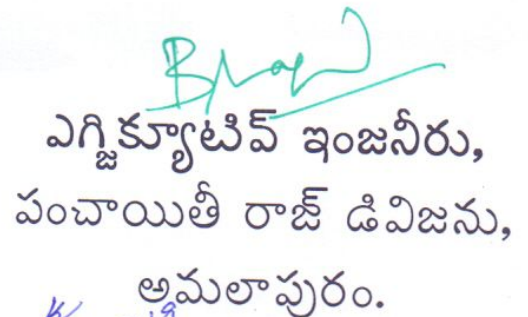 ఎగ్జిక్యూటివ్ ఇంజనీరు,
పంచాయితీ రాజ్ డివిజను,
అమలాపురం.